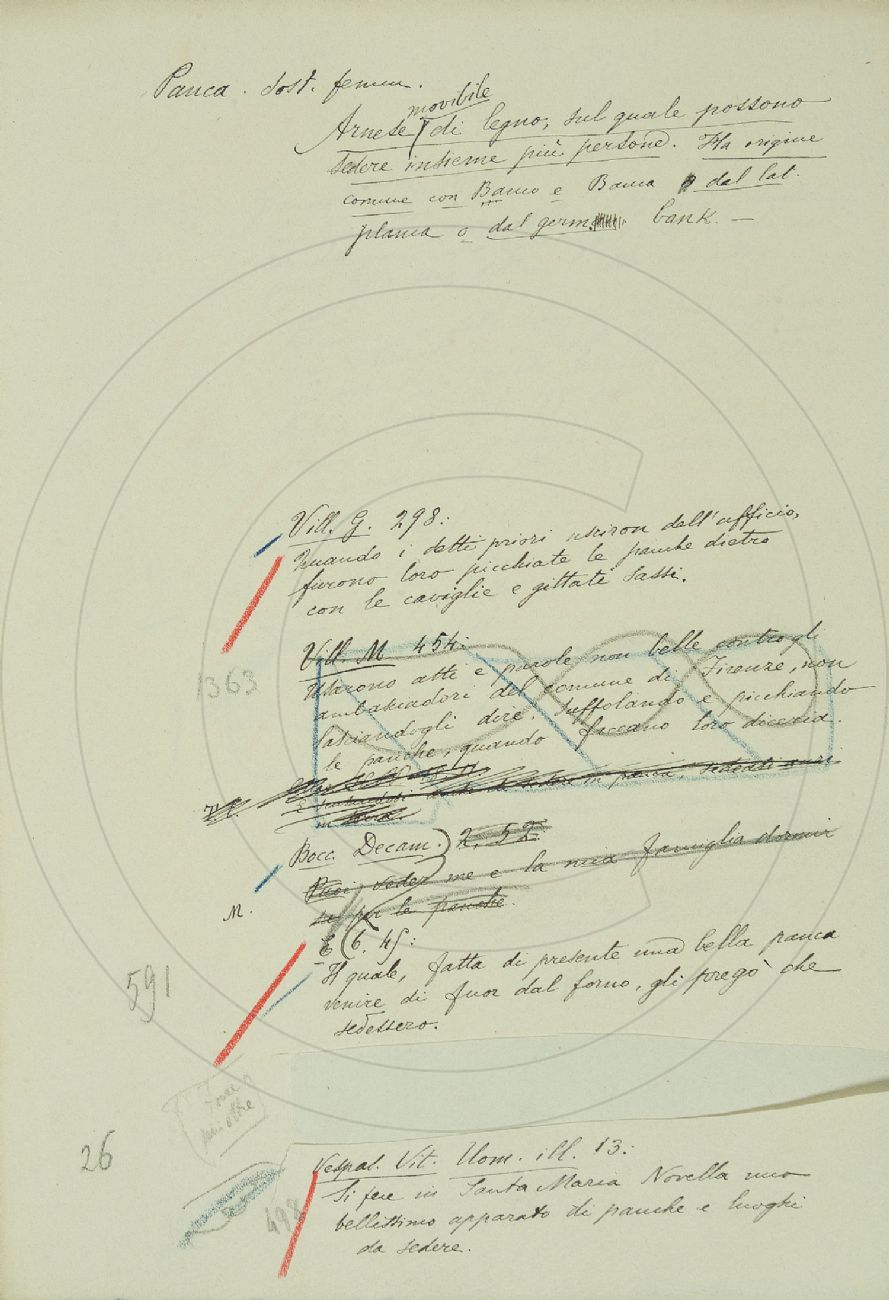 Panca. Sost. femm.
movibile
Arnese di legno, sul quale possono
sedere insieme più persone. Ha origine
comune con Banco e Banca dal lat.
planca o dal germ. bank. —
Vill. G. 298:
Quando i detti priori usciron dell'ufficio,
furono loro picchiate le panche dietro
con le caviglie e gittati sassi.
Vill. M 454:
Usarono atti e parole non belle contro gli
ambasciadori del comune di Firenze, non
lasciandogli dire, suffolando e picchiando
le panche, quando faceano loro diceria.
363
in panca, sedendo anzi
in terra.
Bocc. Decam. 2. 52
Puoi veder me e la mia famiglia dormir
su per le panche.
M.
E 6. 45:
Il quale, fatta di presente una bella panca
venire di fuor dal forno, gli pregò che
sedessero.
591
Forse
più oltre
26
Vespas. Vit. Uom. ill. 13:
Si fece in Santa Maria Novella uno
bellissimo apparato di panche e luoghi
da sedere.
498